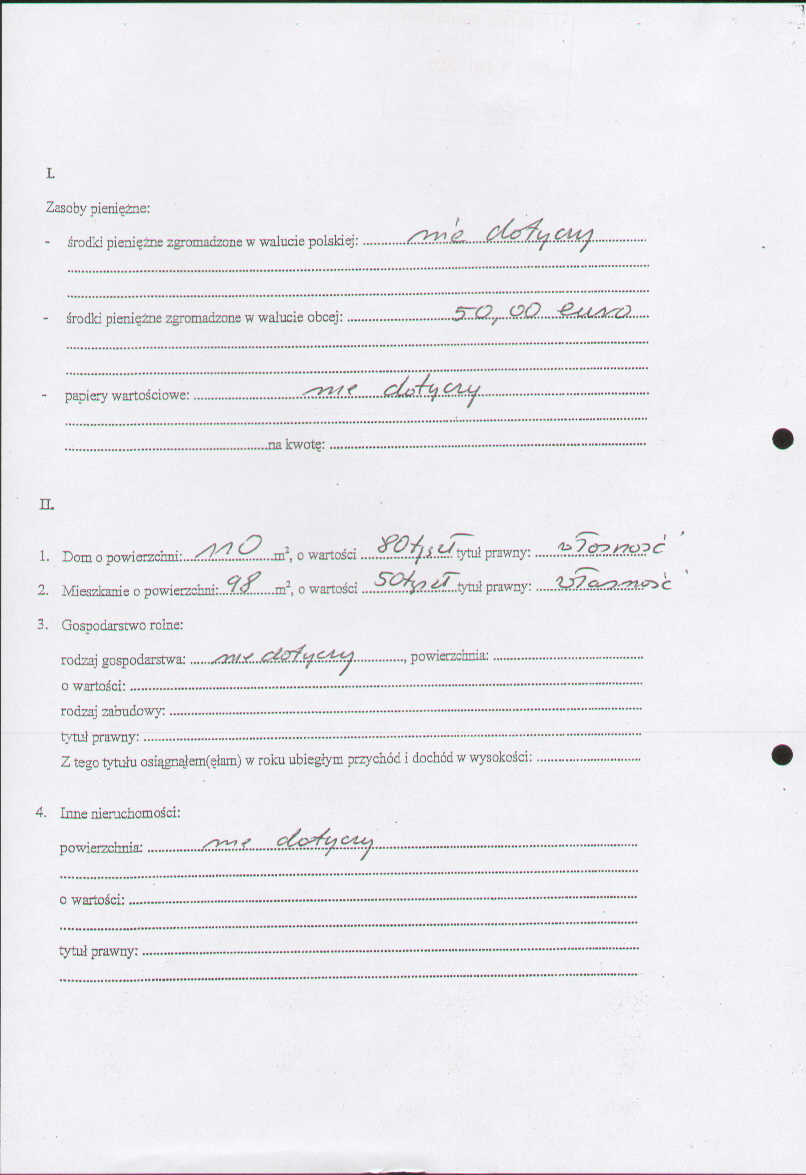 I.
Zasoby pieniężne:
- środki pieniężne zgromadzone w walucie polskiej: nie dotyczy
- środki pieniężne zgromadzone w walucie obcej: 50,00 euro
- papiery wartościowe: nie dotyczy
na kwotę:
II.
1. Dom o powierzchni: 110 m², o wartości 80 tys zł tytuł prawny: własność
2. Mieszkanie o powierzchni: 98 m², o wartości 50 tys zł tytuł prawny: własność
3. Gospodarstwo rolne:
rodzaj gospodarstwa: nie dotyczy, powierzchnia:
o wartości:
rodzaj zabudowy:
tytuł prawny:
Z tego tytułu osiągnąłem(ęłam) w roku ubiegłym przychód i dochód w wysokości:
4. Inne nieruchomości:
powierzchnia: nie dotyczy
o wartości:
tytuł prawny: